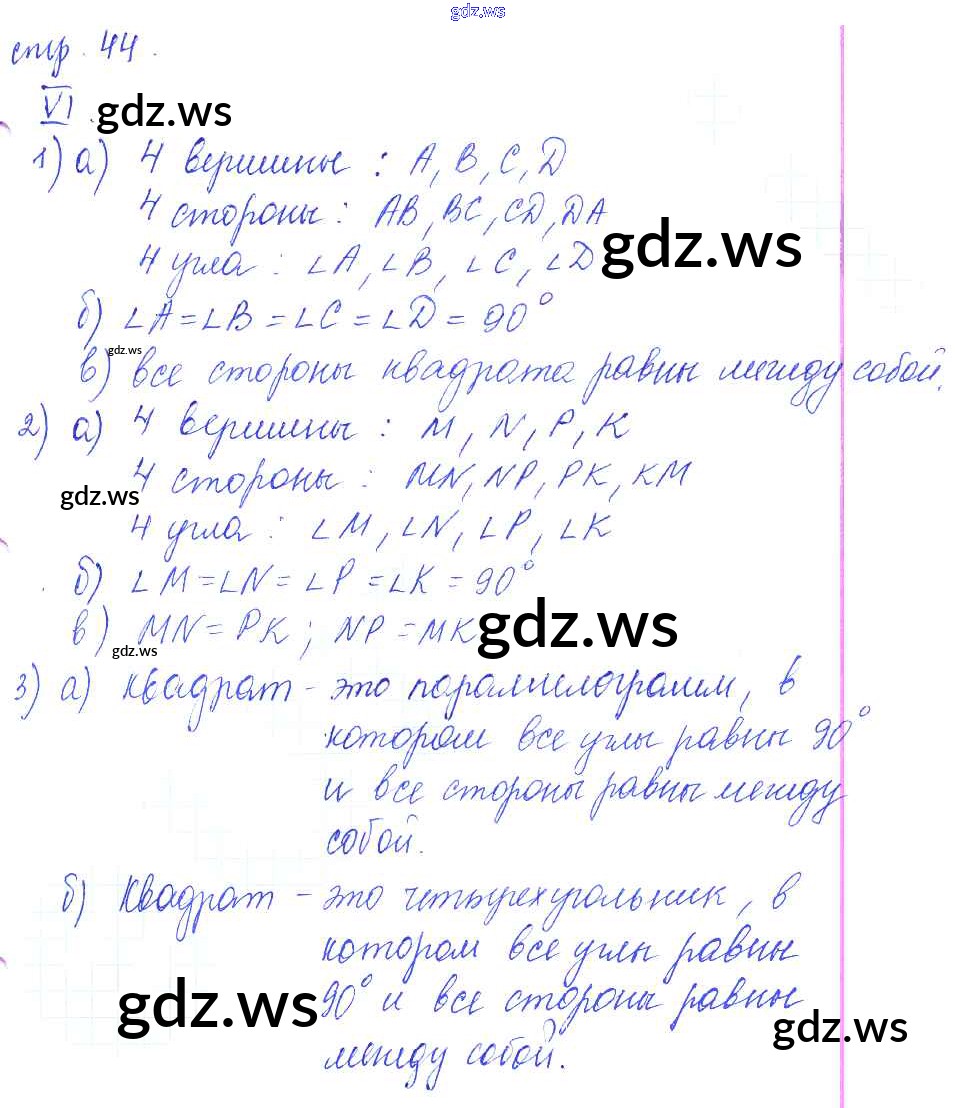 gdz.ws
стр. 44.
VI. gdz.ws
1) а) 4 вершины : A, B, C, D
4 стороны : AB, BC, CD, DA
gdz.ws
4 угла : ∠A, ∠B, ∠C, ∠D
б) ∠A = ∠B = ∠C = ∠D = 90°
gdz.ws
в) все стороны квадрата равны между собой.
2) а) 4 вершины : M, N, P, K
4 стороны : MN, NP, PK, KM
gdz.ws
4 угла : ∠M, ∠N, ∠P, ∠K
б) ∠M = ∠N = ∠P = ∠K = 90°
в) MN = PK ; NP = MK gdz.ws
gdz.ws
3) а) Квадрат - это параллелограмм, в
котором все углы равны 90°
и все стороны равны между
собой.
б) Квадрат - это четырехугольник, в
котором все углы равны
90° и все стороны равны
gdz.ws
gdz.ws
между собой.